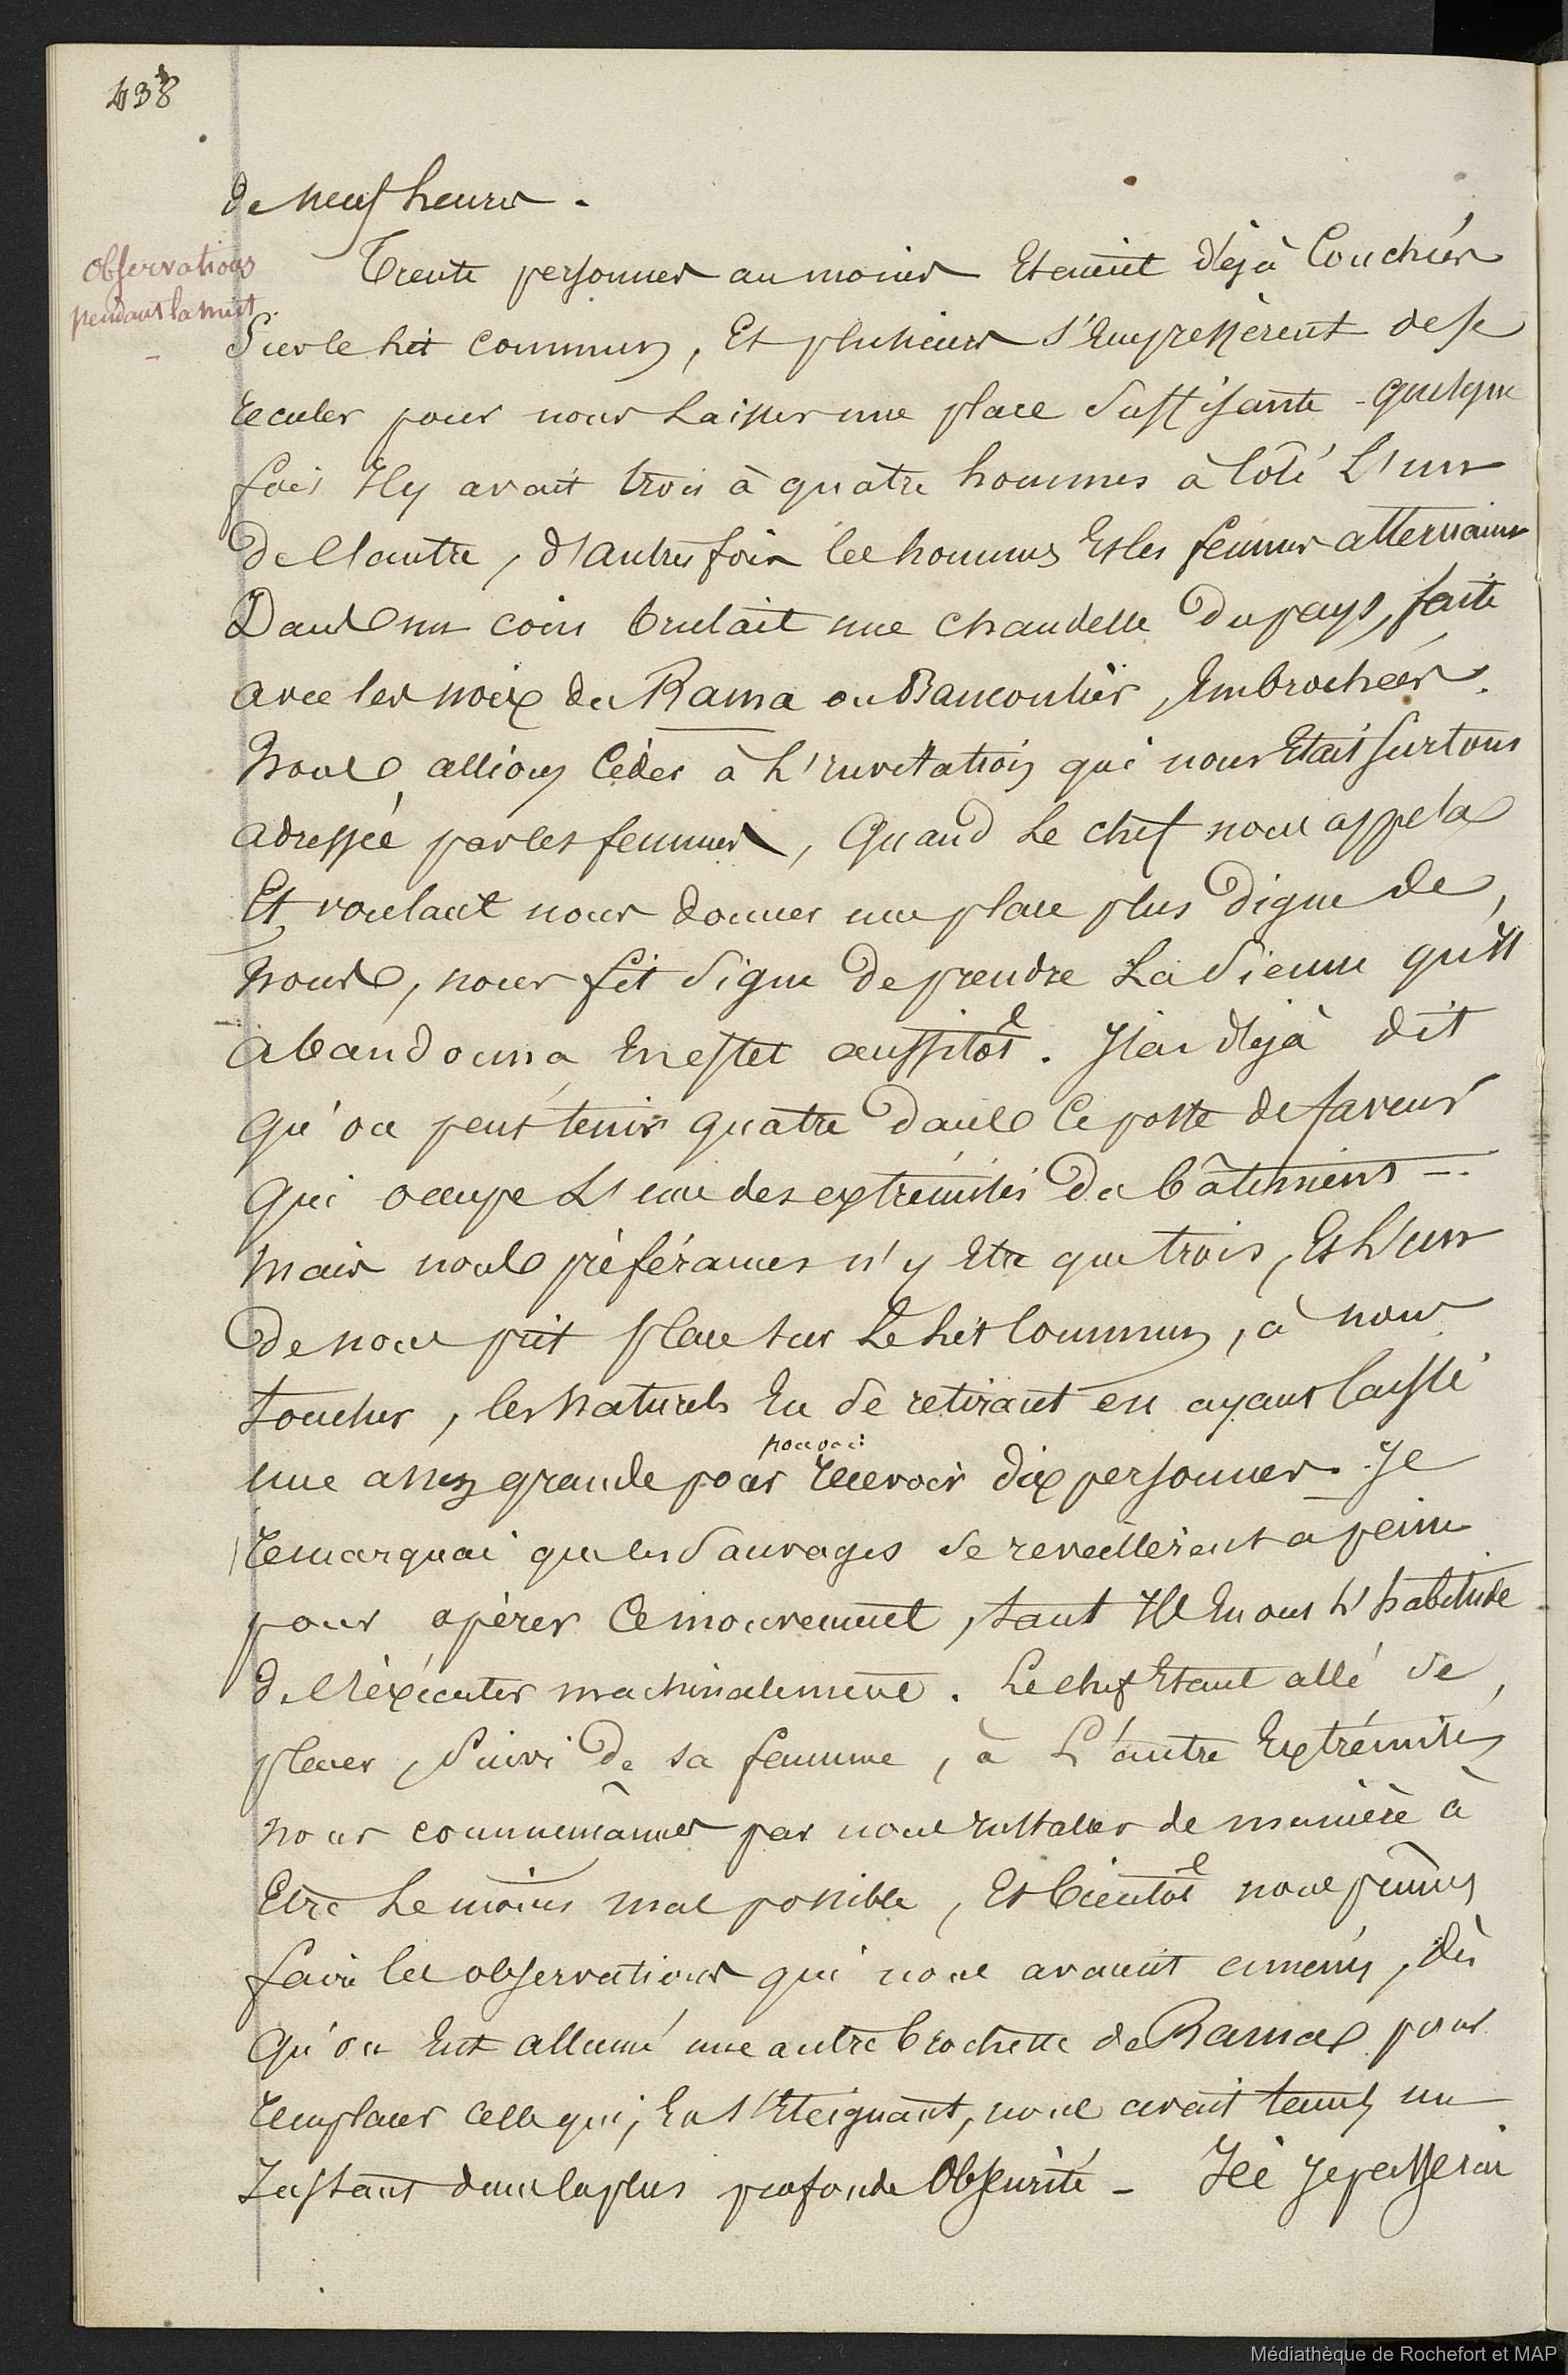 438
de neuf heures.
Observations
pendant la nuit.
Trente personnes au moins Etaient déjà Couchées
Sur le lit commun, Et plusieurs s'Empressèrent de se
reculer pour nous Laisser une place Suffisante - quelque
fois Il y avait trois à quatre hommes à Coté L'un
De l'autre, d'autres fois les hommes Et les femmes alternaient
Dans un coin brulait une chandelle Du pays, faite
avec les noix du Rama ou Bancoulier, Embrochées.
Nous allions Céder à L'invitation qui nous Etait surtout
adressée par les femmes, Quand Le chef nous appela
Et voulant nous donner une place plus Digne de
Nous, nous fit Signe De prendre La Sienne qu'Il
abandonna En effet aussitot. J'ai déjà dit
qu'on peut tenir quatre Dans Ce poste de faveur
Qui occupe L'une des extrémités Du bâtiment -
Mais nous préférames n'y Etre que trois, Et L'un
De nous prit place sur Le Lit Commun, à nous
toucher, les Naturels En se retirant en ayant laissé
une assez grande pour pouvoir recevoir dix personnes. Je
remarquai que les Sauvages se reveillèrent a peine
pour opérer Ce mouvement, tant Ils En ont L'habitude
de l'éxécuter machinalement. Le chef Etant allé se
placer, Suivi De sa femme, à L'autre Extrémité,
nous commençâmes par nous Installer de manière à
Etre Le moins mal possible, Et bientot nous pûmes
faire les observations qui nous avaient amenés, dès
Qu'on Eut allumé une autre brochette de Rama pour
remplacer celle qui, En s'Eteignant, nous avait tenus un
Instant dans la plus profonde Obscurité - Ici Je passerai
Médiathèque de Rochefort et MAP